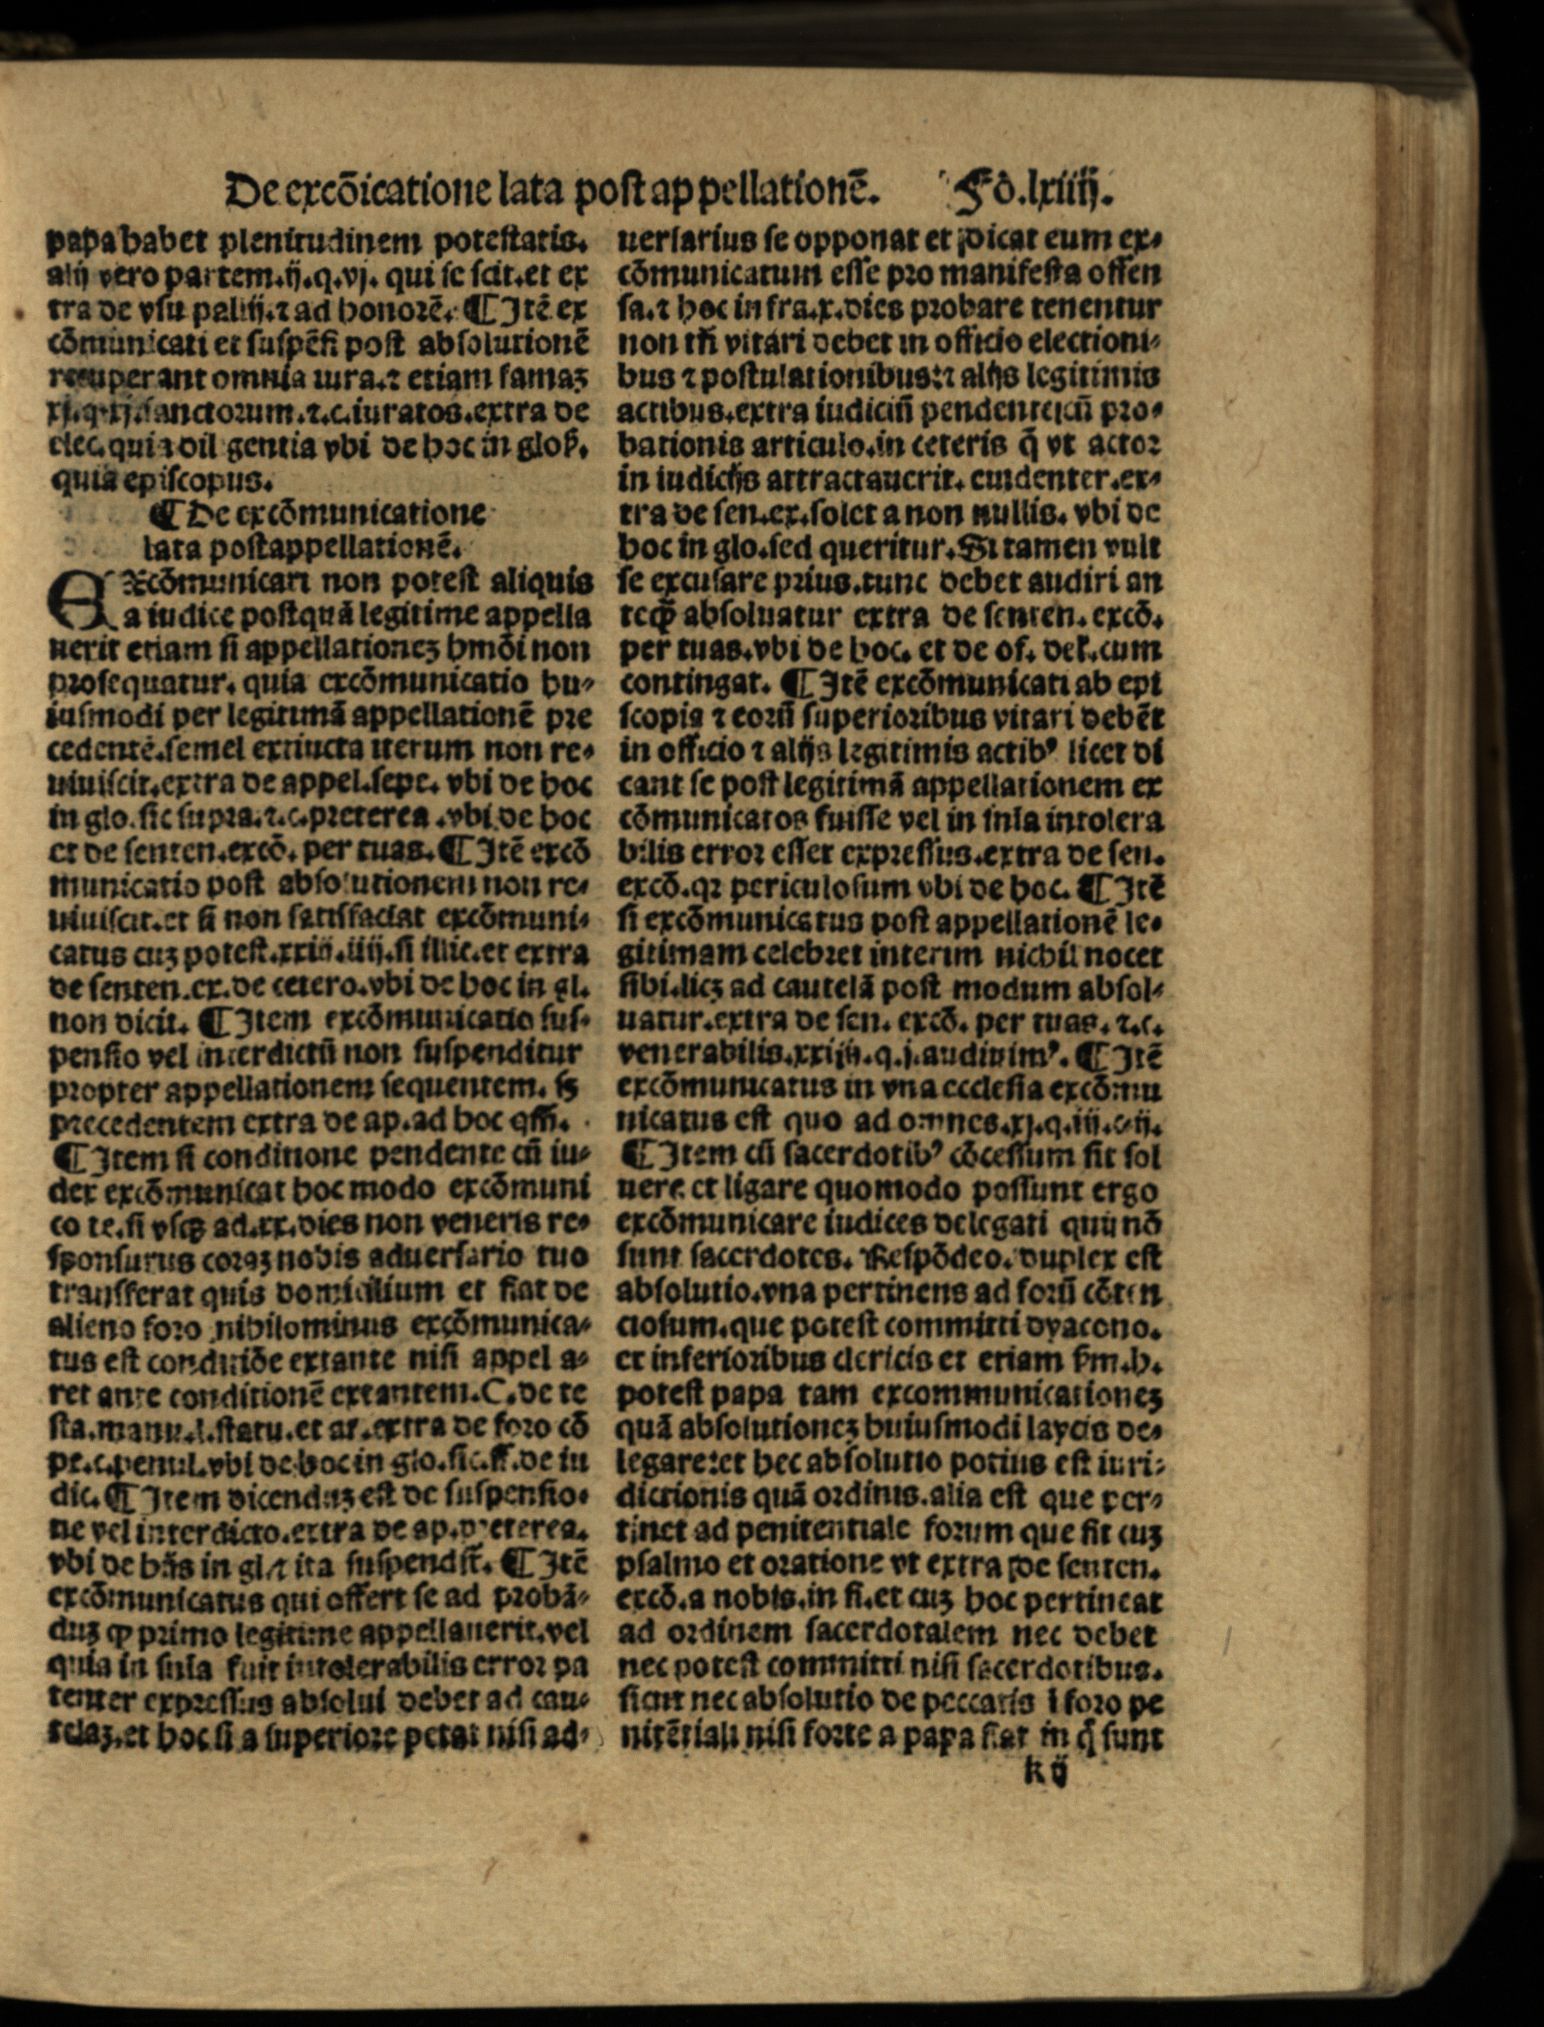 De excõicatione lata post appellationẽ. Fo.lxiiij.
papa habet plenitudinem potestatis.
alij vero partem.ij.q.vj. qui se scit.et ex
tra de vsu pallij.⁊ ad honorẽ. ¶ Itẽ ex
cõmunicati et suspẽsi post absolutionẽ
recuperant omnia iura.⁊ etiam famaꝫ
xj.q.xj.sanctorum.⁊.c.iuratos.extra de
elec.quia diligentia vbi de hoc in glos.
quia episcopus.
¶ De excõmunicatione
lata post appellationẽ.
EXcõmunicari non potest aliquis
a iudice postquã legitime appella
uerit etiam si appellationeꝫ hmõi non
prosequatur. quia excõmunicatio hu-
iusmodi per legitimã appellationẽ pre
cedentẽ.semel extincta iterum non re-
uiuiscit.extra de appel.sepe. vbi de hoc
in glo. sic supra.⁊.c.preterea .vbi de hoc
et de senten.excõ. per tuas. ¶ Itẽ excõ
municatio post absolutionem non re-
uiuiscit.et si non satisfaciat excõmuni-
catus cuꝫ potest.xxiij.iiij.si illic.et extra
de senten.ex.de cetero.vbi de hoc in gl.
non dicit. ¶ Item excõmunicatio sus-
pensio vel interdictũ non suspenditur
propter appellationem sequentem. sꝫ
precedentem extra de ap.ad hoc qm̃.
¶ Item si conditione pendente cũ iu-
dex excõmunicat hoc modo excõmuni
co te.si vsqꝫ ad.xx.dies non veneris re-
sponsurus coraꝫ nobis aduersario tuo
transferat quis domicilium et fiat de
alieno foro nihilominus excõmunica-
tus est conditiõe extante nisi appella-
ret ante conditionẽ extantem.C.de te
sta.manu.l.statu.et ar.extra de foro cõ
pe.c.penul.vbi de hoc in glo.sic.ff.de iu
dic. ¶ Item dicenduꝫ est de suspensio-
ne vel interdicto.extra de ap.preterea.
vbi de his in gl.⁊ ita suspendit̃. ¶ Itẽ
excõmunicatus qui offert se ad probã-
duꝫ ꝙ primo legitime appellauerit.vel
quia in snĩa fuit intolerabilis error pa
tenter expressus absolui debet ad cau-
telaꝫ.et hoc si a superiore petat nisi ad-
uersarius se opponat et dicat eum ex-
cõmunicatum esse pro manifesta offen
sa.⁊ hoc infra.x.dies probare tenentur
non tñ vitari debet in officio electioni-
bus ⁊ postulationibus:⁊ alijs legitimis
actibus.extra iudiciũ pendente cũ pro-
bationis articulo.in ceteris q̃ vt actor
in iudicijs attractauerit. euidenter.ex-
tra de sen.ex.solet a non nullis. vbi de
hoc in glo.sed queritur. Si tamen vult
se excusare prius.tunc debet audiri an
teqꝫ absoluatur extra de senten. excõ.
per tuas.vbi de hoc. et de of. del̃.cum
contingat. ¶ Itẽ excõmunicati ab epi
scopis ⁊ eorũ superioribus vitari debẽt
in officio ⁊ alijs legitimis actibꝰ licet di
cant se post legitimã appellationem ex
cõmunicatos fuisse vel in snĩa intolera
bilis error esset expressus.extra de sen.
excõ.qꝛ periculosum vbi de hoc. ¶ Itẽ
si excõmunicatus post appellationẽ le-
gitimam celebret interim nichil nocet
sibi.licꝫ ad cautelã post modum absol-
uatur.extra de sen. excõ. per tuas. ⁊.c.
venerabilis.xxiiij.q.j.audiuimꝰ. ¶ Itẽ
excõmunicatus in vna ecclesia excõmu
nicatus est quo ad omnes.xj.q.iij.c.ij.
¶ Item cũ sacerdotibꝰ cõcessum sit sol
uere et ligare quomodo possunt ergo
excõmunicare iudices delegati quũ nõ
sunt sacerdotes. Respõdeo. duplex est
absolutio.vna pertinens ad forũ cõten
ciosum.que potest committi dyacono.
et inferioribus clericis et etiam fm.h.
potest papa tam excommunicationeꝫ
quã absolutioneꝫ huiusmodi laycis de-
legare:et hec absolutio potius est iuri-
dictionis quã ordinis.alia est que per-
tinet ad penitentiale forum que fit cuꝫ
psalmo et oratione vt extra de senten.
excõ.a nobis.in fi.et cuꝫ hoc pertineat
ad ordinem sacerdotalem nec debet
nec potest committi nisi sacerdotibus.
sicut nec absolutio de peccatis ĩ foro pe
nitẽtiali nisi forte a papa fiat in q̃ sunt
k ij